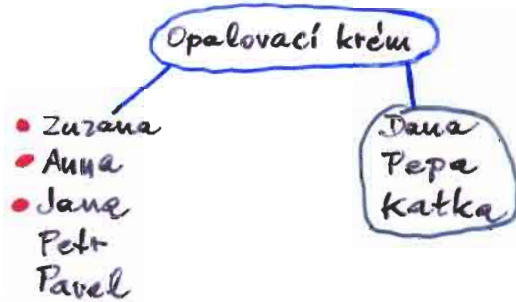 Opalovací krém
Zuzana
Anna
Jana
Petr
Pavel
Dana
Pepa
Katka